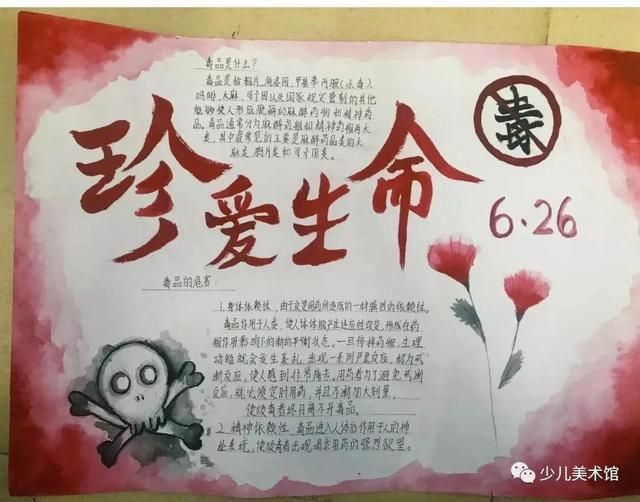 毒品是什么?
毒品是指鸦片、海洛因、甲基苯丙胺(冰毒)、
吗啡、大麻、可卡因以及国家规定管制的其他
能够使人形成瘾癖的麻醉药品和精神药
品。毒品通常分为麻醉药品和精神药品两大
类。其中最常见的主要是麻醉药品类的大
麻类、鸦片类和可卡因类。
毒
珍爱生命
6.26
毒品的危害:
1.身体依赖性,由于反复用药所造成的一种强烈的依赖性。
毒品作用于人体,使人体体能产生适应性改变,形成在药
物作用影响下的新的平衡状态。一旦停掉药物,生理
功能就会发生紊乱,出现一系列严重反应,称为戒
断反应,使人感到非常痛苦。用药者为了避免戒断
反应,就必须定时用药,并且不断加大剂量,
使吸毒者终日离不开毒品。
2.精神依赖性。毒品进入人体后作用于人的神
经系统,使吸毒者出现渴求用药的强烈欲望。
少儿美术馆